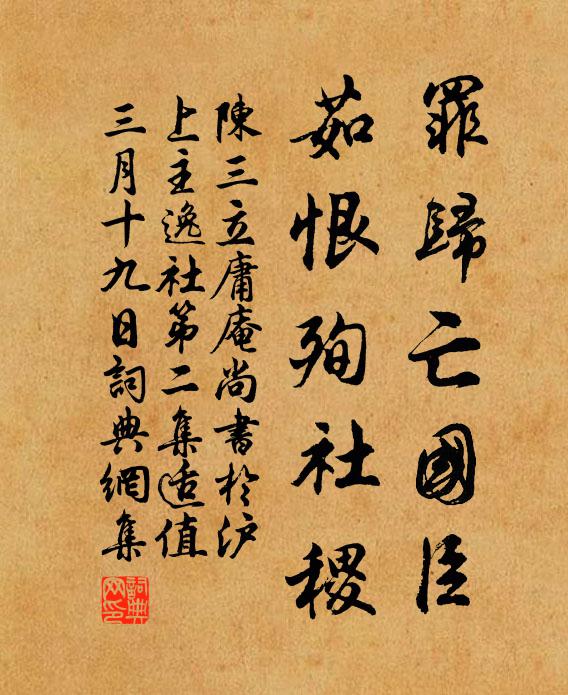 罪歸亡國臣
茹恨殉社稷
陳三立庸庵尚書於沪
上主逸社第二集适值
三月十九日詞典網集
詞典網印